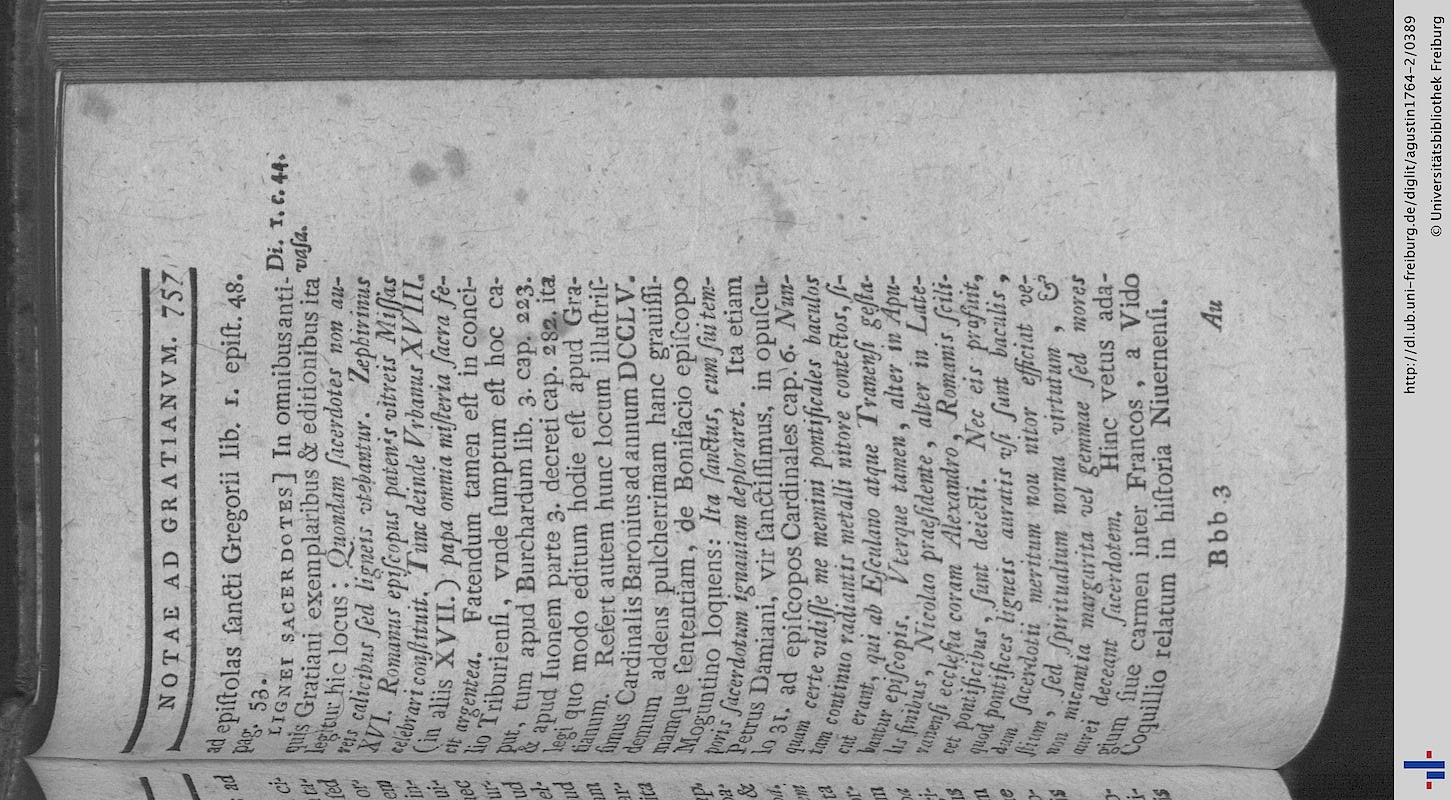 NOTAE AD GRATIANVM. 757
ad epiſtolas ſancti Gregorii lib. 1. epiſt. 48.
pag. 53.
LIGNEI SACERDOTES] In omnibus anti-
Di. 1. c. 44.
quis Gratiani exemplaribus & editionibus ita
vaſa.
legitur hic locus: Quondam ſacerdotes non au-
reis calicibus ſed ligneis vtebantur. Zephirinus
XVI. Romanus epiſcopus patenis vitreis Miſſas
celebrari conſtituit. Tunc deinde Vrbanus XVIII.
(in aliis XVII.) papa omnia miſteria ſacra fe-
cit argentea. Fatendum tamen eſt in conci-
lio Tribuienſi, vnde ſumptum eſt hoc ca-
put, tum apud Burchardum lib. 3. cap. 223.
& apud Iuonem parte 3. decreti cap. 282. ita
legi quo modo editum hodie eſt apud Gra-
tianum. Refert autem hunc locum illuſtriſ-
ſimus Cardinalis Baronius ad annum DCCLV.
demum addens pulcherrimam hanc grauiſſi-
mamque ſententiam, de Bonifacio epiſcopo
Moguntino loquens: Ita ſanctus, cum ſui tem-
poris ſacerdotum ignauiam deploraret. Ita etiam
Petrus Damiani, vir ſanctiſſimus, in opuſcu-
lo 31. ad epiſcopos Cardinales cap. 6. Nun-
quam certe vidiſſe me memini pontificales baculos
tam continuo radiantis metalli nitore contectos, ſi-
cut erant, qui ab Eſculano atque Tranenſi geſta-
bantur epiſcopis. Vterque tamen, alter in Apu-
lis finibus, Nicolao praeſidente, alter in Late-
ranenſi eccleſia coram Alexandro, Romanis ſcili-
cet pontificibus, ſunt deiecti. Nec eis profuit,
quod pontifices ligneis auratis vſi ſunt baculis,
dum ſacerdotii meritum nou nitor efficiat ve-
ſtium, ſed ſpiritualium norma virtutum, &
non micantia margarita vel gemmae ſed mores
aurei deceant ſacerdotem. Hinc vetus ada-
gium ſiue carmen inter Francos, a Vido
Coquillio relatum in hiſtoria Niuernenſi.
Bbb 3
Au
http://dl.ub.uni-freiburg.de/diglit/agustin1764-2/0389
© Universitätsbibliothek Freiburg